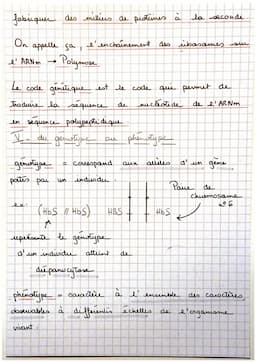 fabriquer des milliers de protéines à la seconde
On appelle ça, l'enchaînement des ribosomes sur
l'ARNm → Polymose
Le code génétique est le code qui permet de
traduire la séquence de nucléotide de l'ARNm
en séquence polypeptidique.
V - du génotype au phénotype
génotype = correspond aux allèles d'un gène
portés par un individu.
Paire de
chromosome
ex : (HbS // HbS) HBS HbS
représente le génotype
d'un individu atteint de
drépanocytose
phénotype = caractère à l'ensemble des caractères
observables à différentes échelles de l'organisme
vivant.